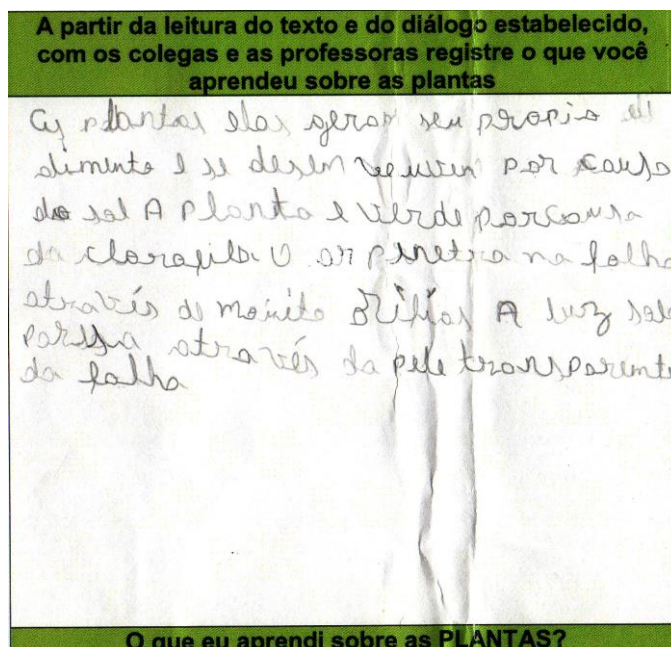 A partir da leitura do texto e do diálogo estabelecido,
com os colegas e as professoras registre o que você
aprendeu sobre as plantas
As plantas elas geram seu propio
alimento e se desem por causa
do sol A Planta e verde porcausa
da clorofila. O ar penetra na folha
através de muinto orifios A luz sola
passa através da pele transparente
da folha
O que eu aprendi sobre as PLANTAS?